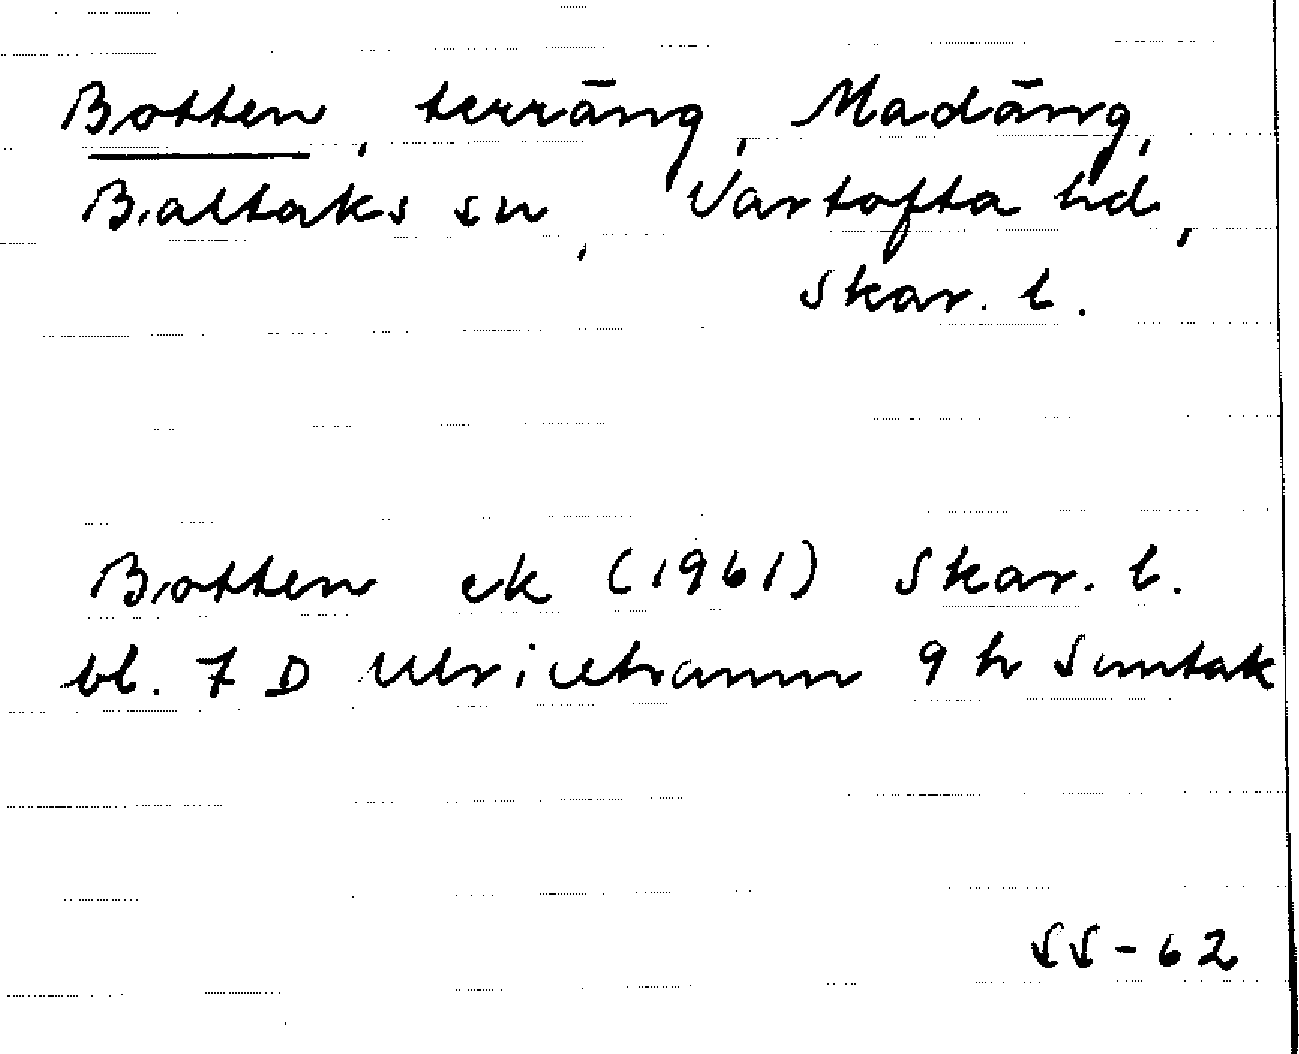 Botten, terräng, Madäng,
Baltaks sn, Vartofta hd,
Skar. l.
Botten ek (1961) Skar. l.
bl. 7 D Ulricehamn 9 h Suntak
SS-62